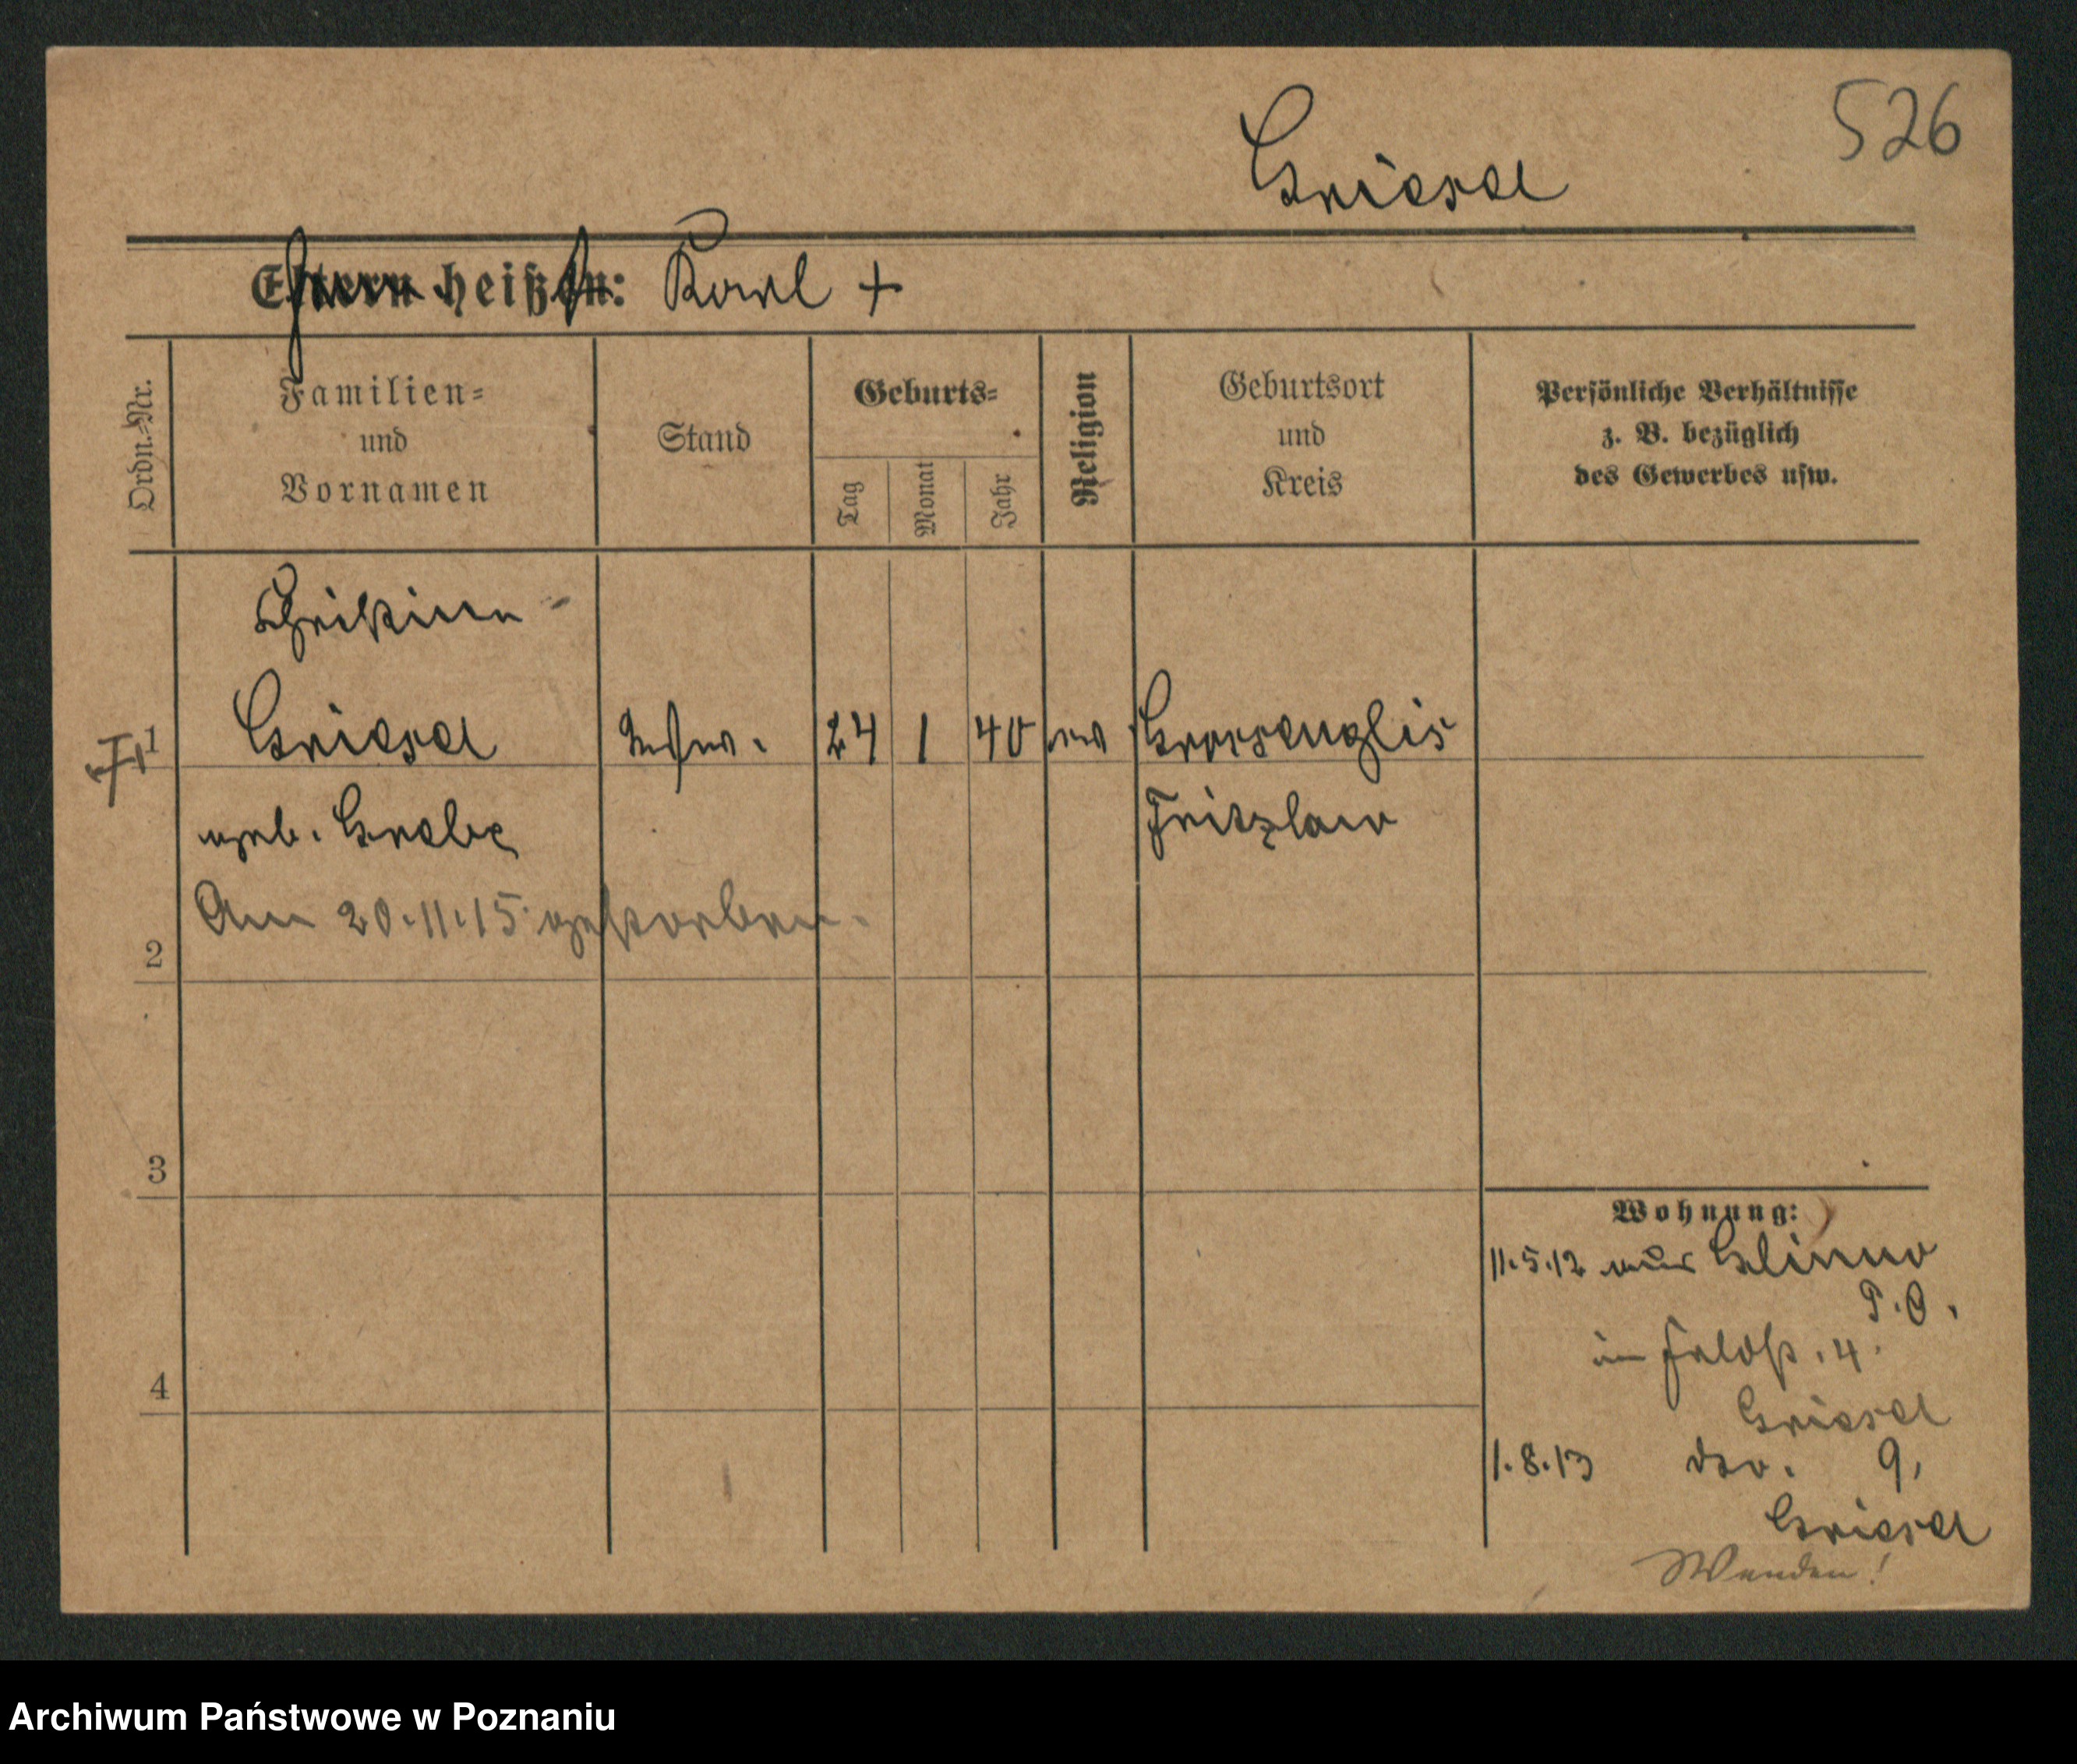 526
Griesel
Eltern heißen: Karl +
Ordn.=Nr.
Familien=
und
Vornamen
Stand
Geburts=
Tag
Monat
Jahr
Religion
Geburtsort
und
Kreis
Persönliche Verhältnisse
z. B. bezüglich
des Gewerbes usw.
Christine
1 Griesel 24 1 40 ev Grossenglis
geb. Grabe Fritzlar
Am 20.11.15 gestorben.
2
3
4
Wohnung:
11.5.12 aus Glinno
P.O.
im Feldst. 4.
Griesel
1.8.13 do. 9,
Griesel
Wenden!
Archiwum Państwowe w Poznaniu